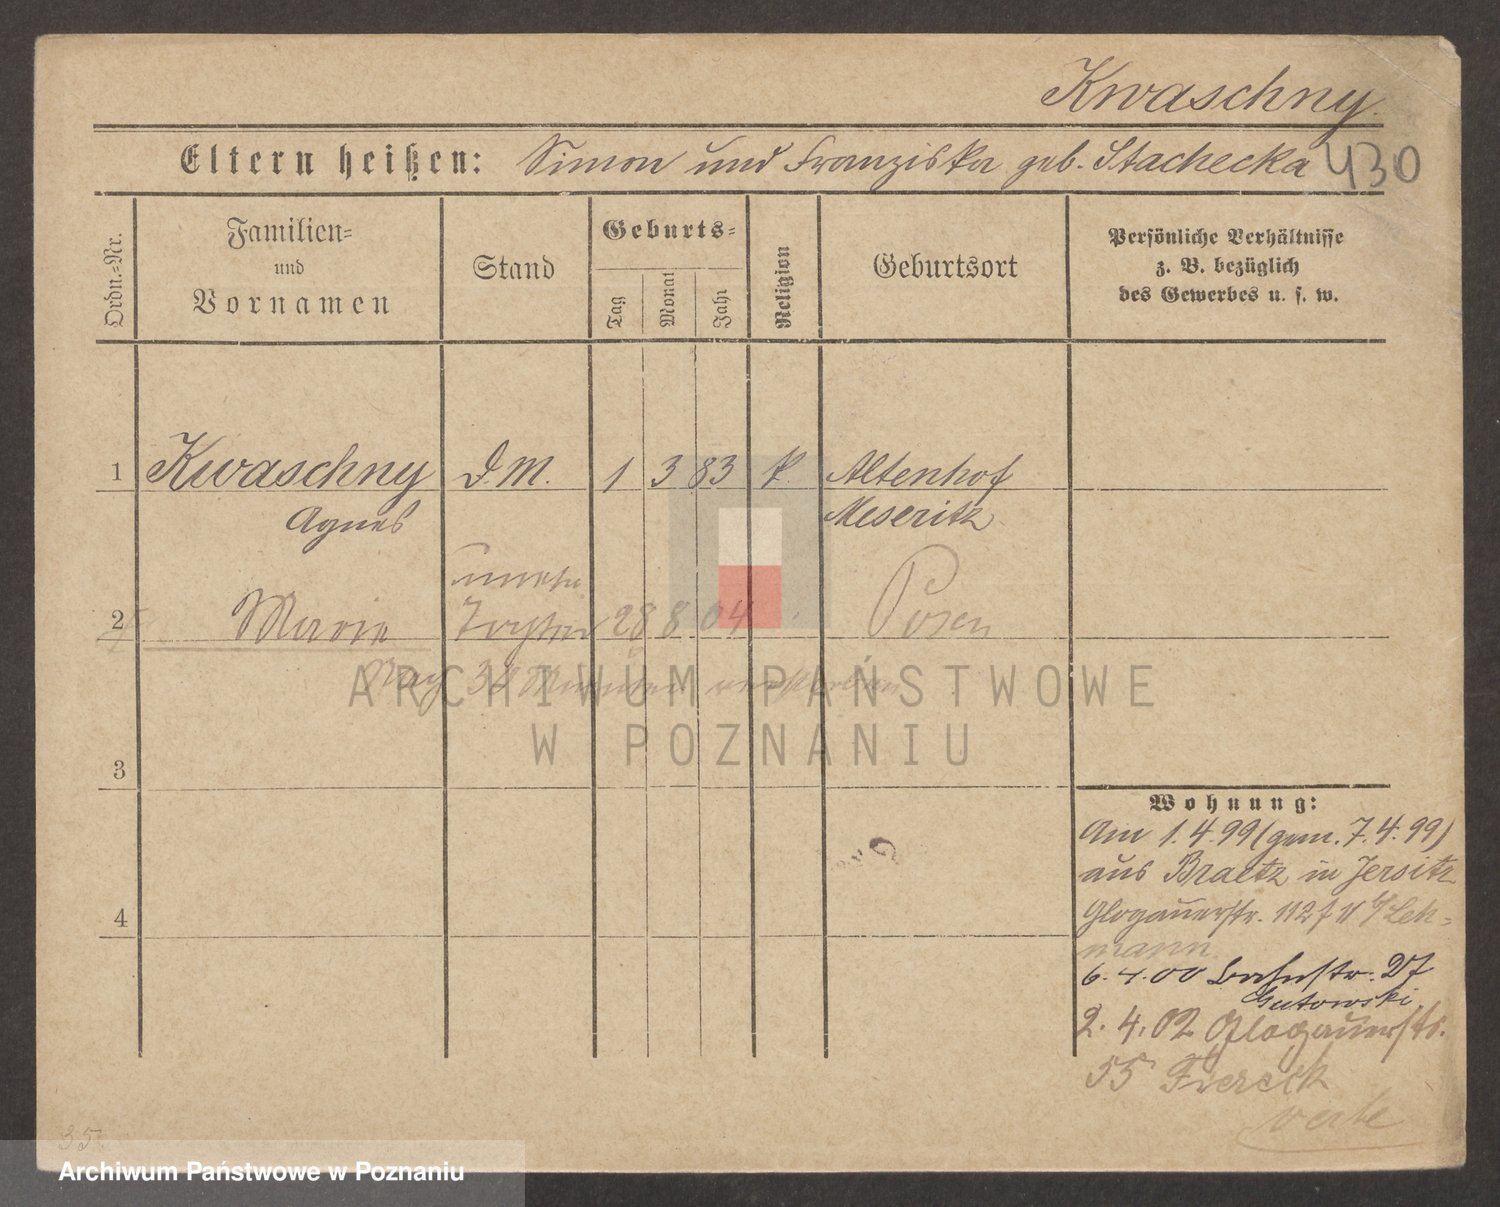 Kwaschny.
Eltern heißen: Simon und Franziska geb. Stachecka 430
Ordn.=Nr.
Familien=
und
Vornamen
Stand
Geburts=
Tag
Monat
Jahr
Religion
Geburtsort
Persönliche Verhältnisse
z. B. bezüglich
des Gewerbes u. s. w.
1 Kwaschny D.M. 1 3 83 k. Altenhof
Agnes Meseritz
2 Marie 28 8 04 Posen
3
4
Wohnung:
Am 1.4.99 (gem. 7.4.99)
aus Braetz in Jersitz
Glogauerstr. 112 Leh-
mann
6.4.00 Bahnstr. 27
Gutowski
2.4.02 Glogauerstr.
55
35
ARCHIWUM PAŃSTWOWE
W POZNANIU
Archiwum Państwowe w Poznaniu